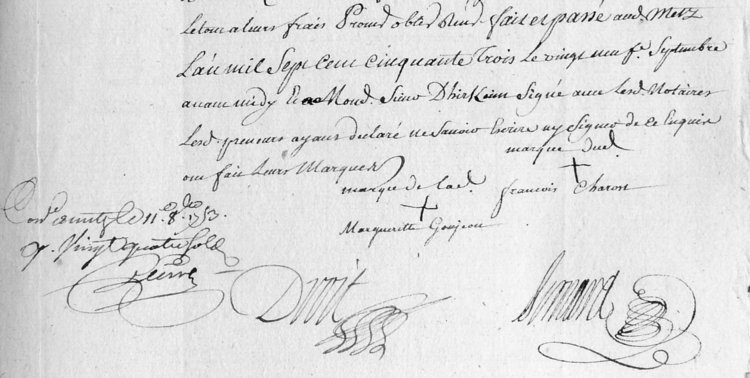 Letout a leurs frais Promd. oblid. Rend. fait et passé aud. Metz
L'an mil Sept Cent Cinquante Trois Le vingt neuf.e Septembre
avant midy Et Mond. Simo Dhirklein Signé avec Lesd. Notaires
Lesd. preneurs ayans declaré ne Savoir Ecrire ny Signer de ce Enquis
ont fait Leurs Marques
marque dud.
marque de Lad.
francois Charon
Margueritte Goujeon
Con.lé a metz le 11.e 8.bre 1753.
R. Vingt quatre Sols
Droit